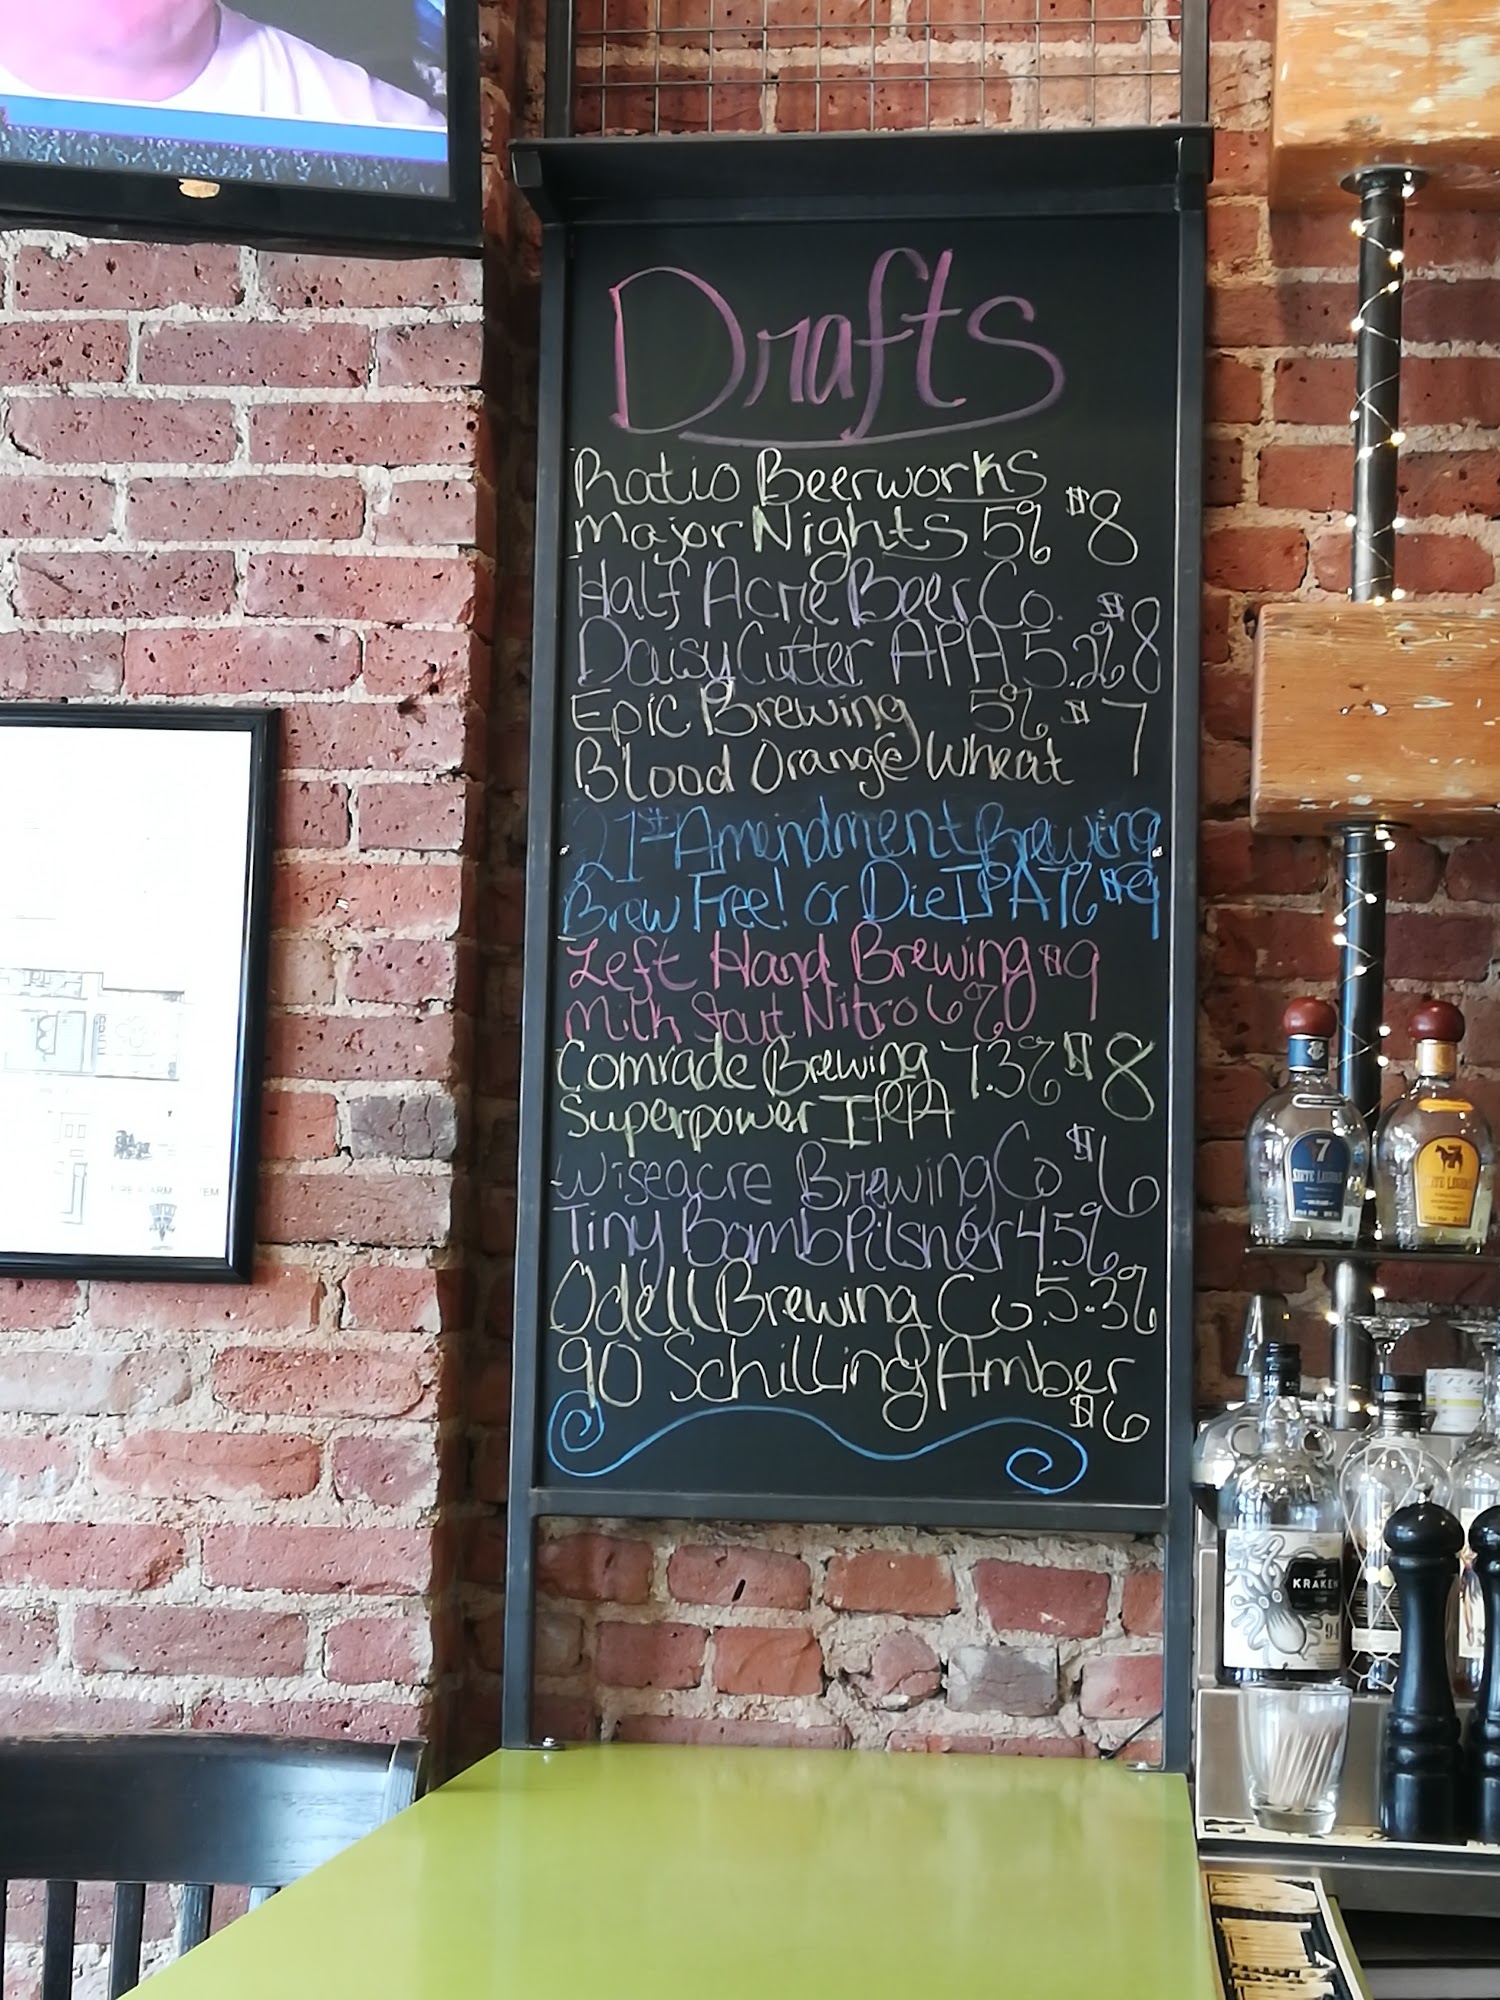 Drafts
Ratio Beerworks
Major Nights 5% $8
Half Acre Beer Co. $8
Daisy Cutter APA 5.2%
Epic Brewing 5% $7
Blood Orange Wheat
21st Amendment Brewing
Brew Free! or Die IPA 7% $9
Left Hand Brewing $9
Milk Stout Nitro 6%
Comrade Brewing 7.3% $8
Superpower IPA
Wiseacre Brewing Co $6
Tiny Bomb Pilsner 4.5%
Odell Brewing Co. 5.3%
90 Schilling Amber
$6
7
SIETE LEGUAS
The
KRAKEN
94